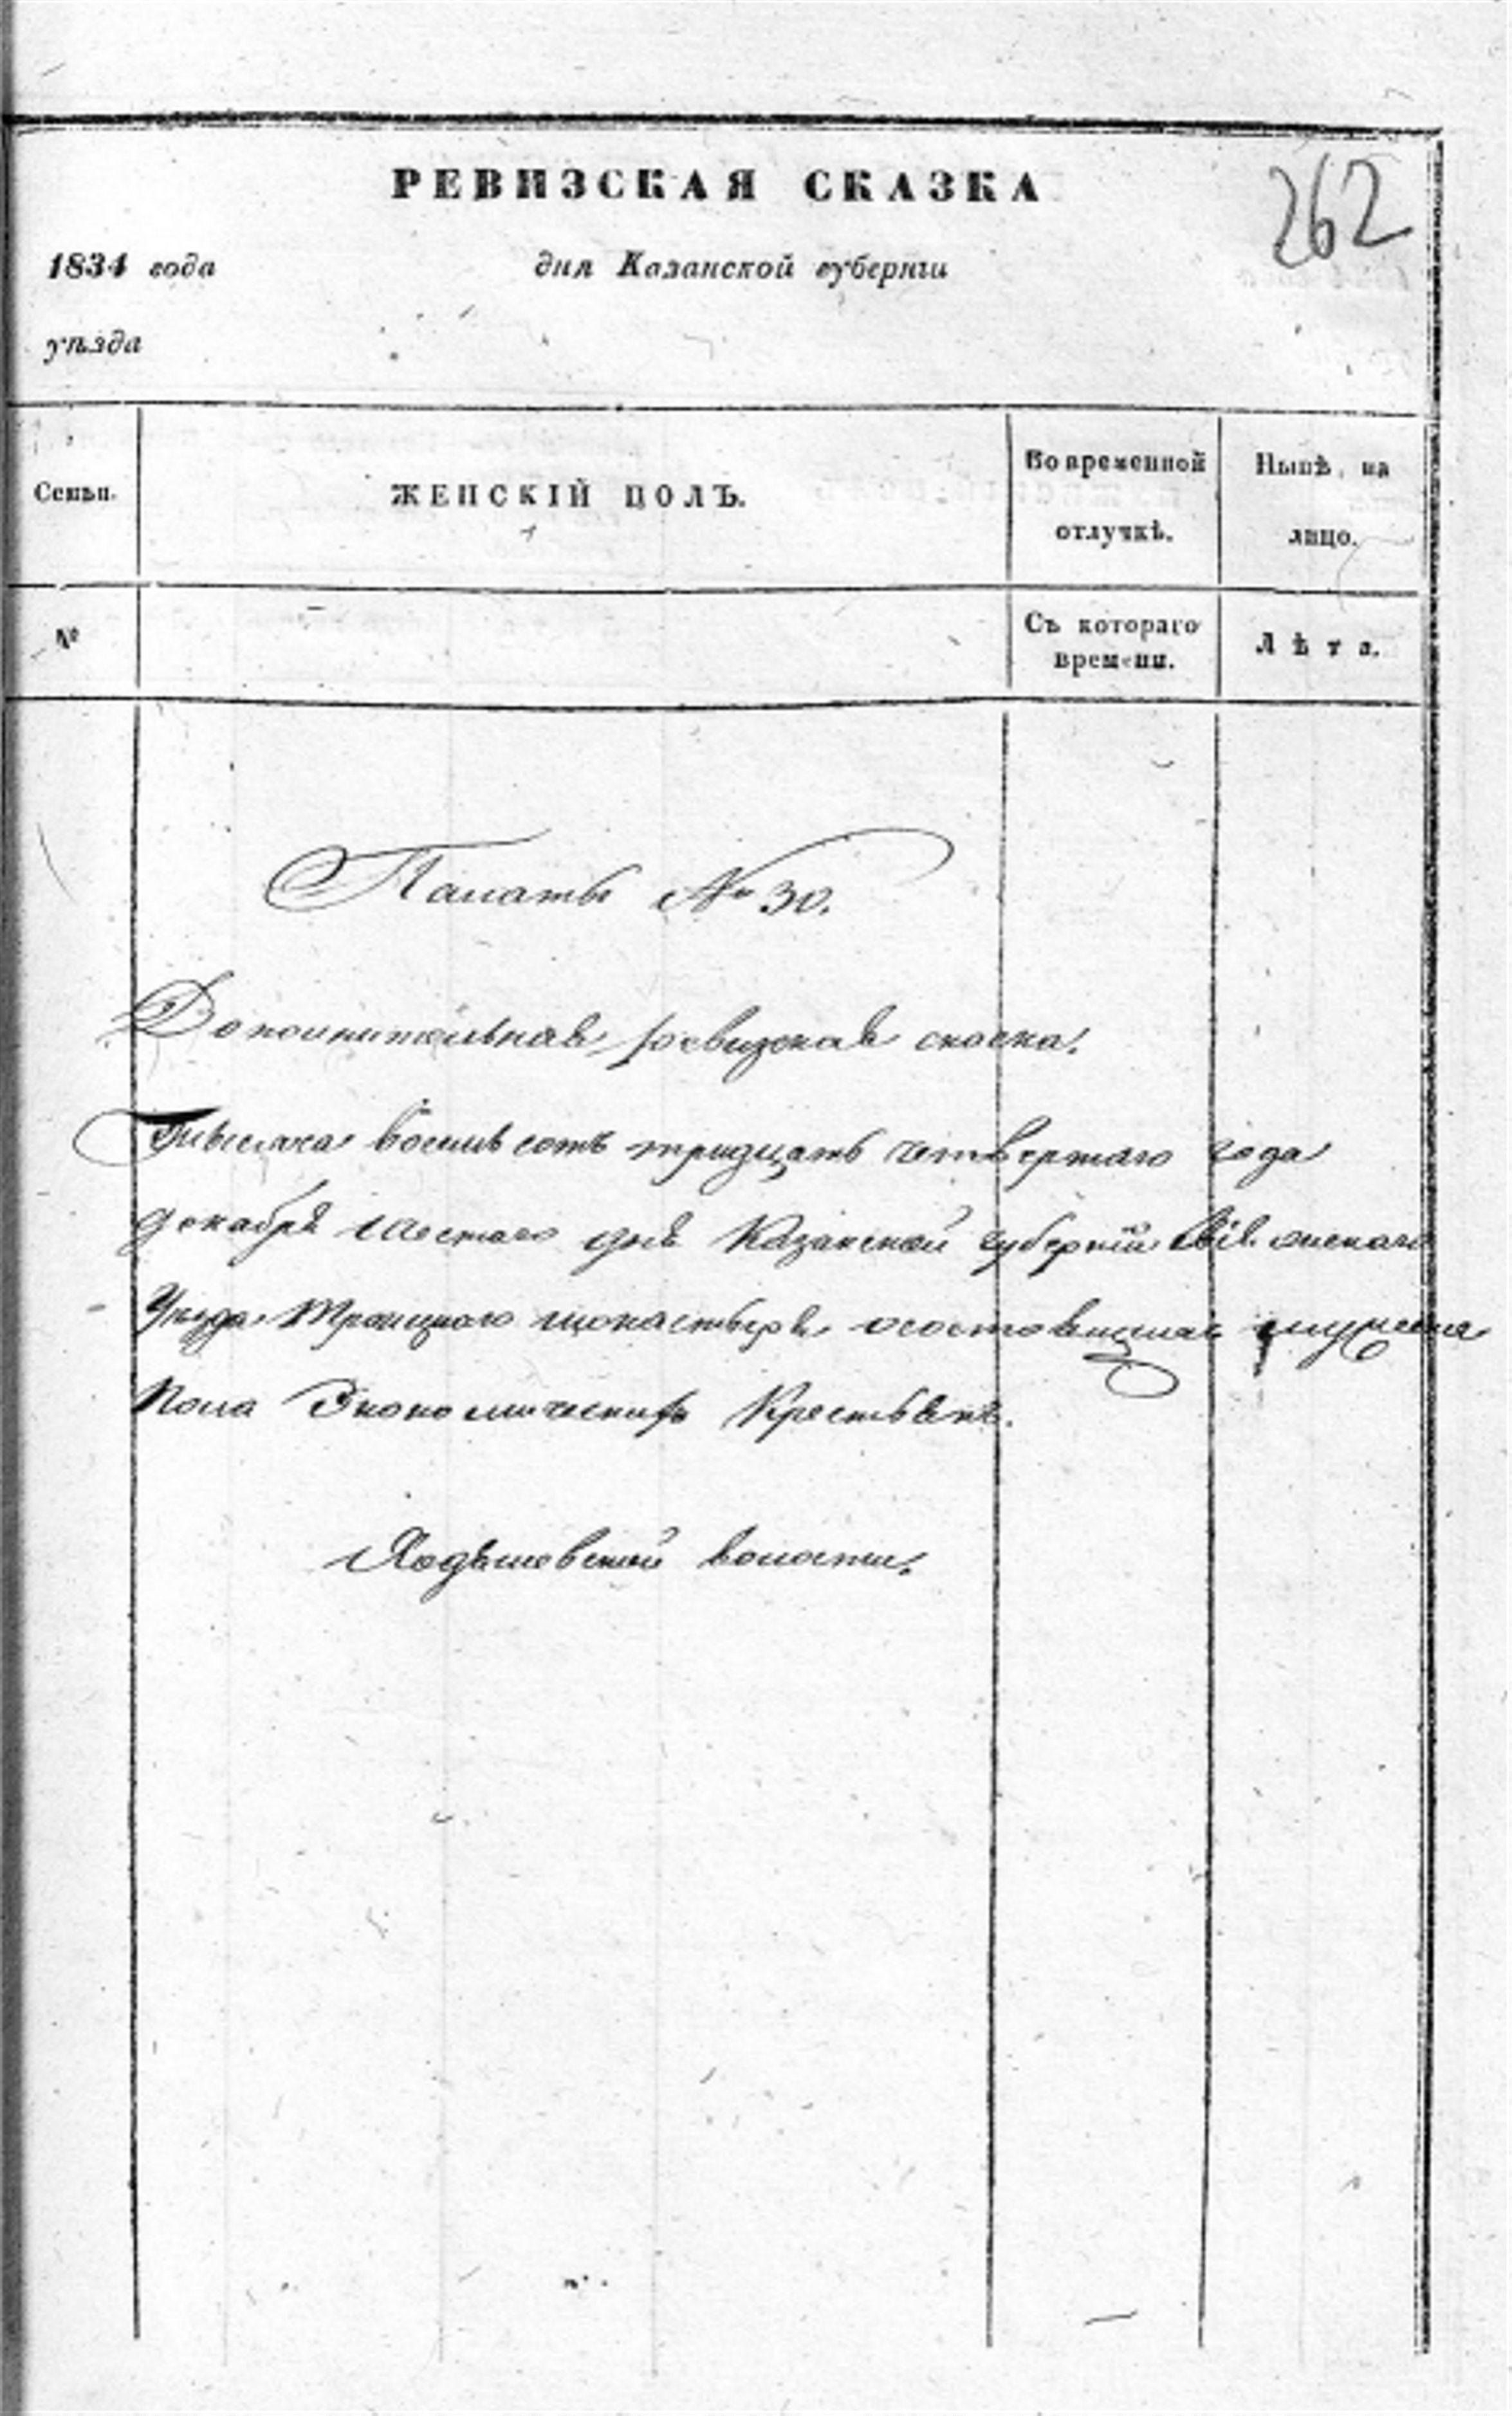 РЕВИЗСКАЯ СКАЗКА
262
1834 года дня Казанской губернїи
уѣзда
Семьи.
ЖЕНСКІЙ ПОЛЪ.
Во временной отлучкѣ.
Нынѣ на лицо.
№
Съ котораго времени.
Лѣта.
Палаты № 30.
Дополнительная ревизская скаска.
Тысяча восемь сотъ тридцать четвертаго года
декабря шестаго дня Казанской губернїи
Уезда Троицкого монастыря осостоящихъ мужеска
Пола Экономическихъ Крестьянъ.
волости.